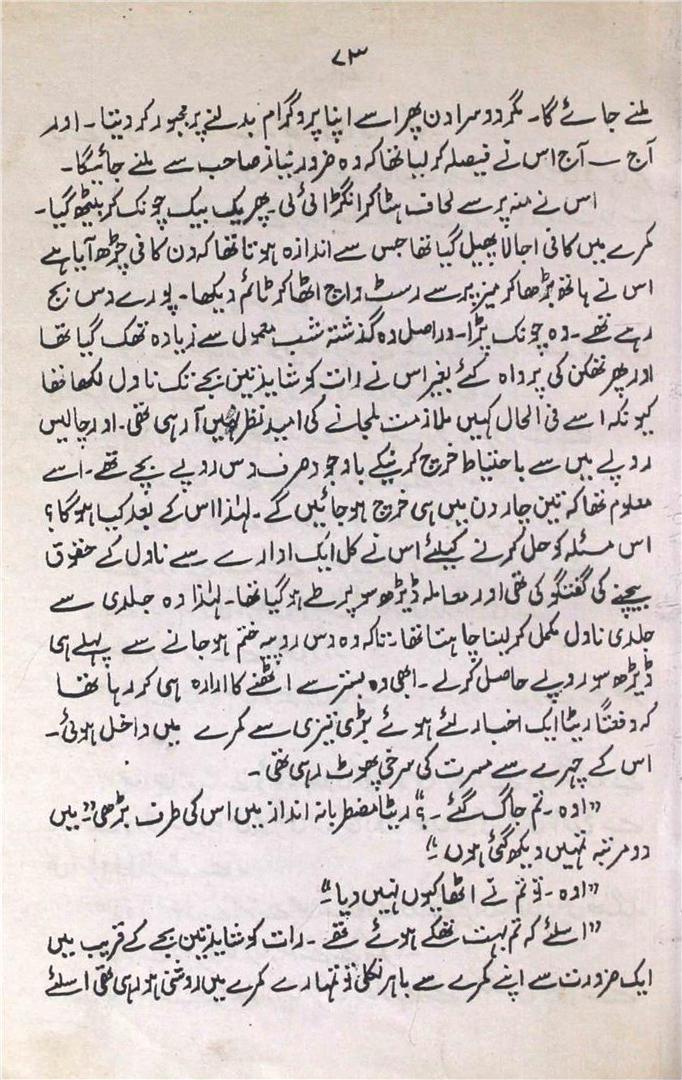 ۷۳
ملنے جائے گا۔ مگر دوسرا دن پھر اسے اپنا پروگرام بدلنے پر مجبور کر دیتا۔ اور
آج — آج اس نے فیصلہ کر لیا تھا کہ وہ ضرور نیاز صاحب سے ملنے جائیگا۔
اس نے منہ پر سے لحاف ہٹا کر انگڑائی لی۔ پھر یک بیک چونک کر بیٹھ گیا۔
کمرے میں کافی اجالا پھیل گیا تھا جس سے اندازہ ہوتا تھا کہ دن کافی چڑھ آیا ہے
اس نے ہاتھ بڑھا کر میز پر سے رسٹ واچ اٹھا کر ٹائم دیکھا۔ پورے دس بج
رہے تھے۔ وہ چونک پڑا۔ دراصل وہ گذشتہ شب معمول سے زیادہ تھک گیا تھا
اور پھر تھکن کی پرواہ کئے بغیر اس نے رات کو شاید تین بجے تک ناول لکھا تھا
کیونکہ اسے فی الحال کہیں ملازمت ملجانے کی امید نظر نہیں آ رہی تھی۔ اور چالیس
روپے میں سے باحتیاط خرچ کرنیکے باوجود صرف دس روپے بچے تھے۔ اسے
معلوم تھا کہ تین چار دن میں ہی خرچ ہو جائیں گے۔ لہٰذا اس کے بعد کیا ہو گا؟
اس مسئلہ کو حل کرنے کیلئے اس نے کل ایک ادارے سے ناول کے حقوق
بیچنے کی گفتگو کی تھی اور معاملہ ڈیڑھ سو پر طے ہو گیا تھا۔ لہٰذا وہ جلدی سے
جلدی ناول مکمل کر لینا چاہتا تھا۔ تاکہ وہ دس روپیہ ختم ہو جانے سے پہلے ہی
ڈیڑھ سو روپے حاصل کرلے۔ ابھی وہ بستر سے اٹھنے کا ارادہ ہی کر رہا تھا
کہ دفعتاً ریٹا ایک اخبار لئے ہوئے بڑی تیزی سے کمرے میں داخل ہوئی۔
اس کے چہرے سے مسرت کی سرخی پھوٹ رہی تھی۔
”اوہ۔ تم جاگ گئے۔؟“ ریٹا مضطربانہ انداز میں اس کی طرف بڑھی ”میں
دو مرتبہ تمہیں دیکھ گئی ہوں۔“
”اوہ۔ تو تم نے اٹھا کیوں نہیں دیا۔“
”اسلئے کہ تم بہت تھکے ہوئے تھے۔ رات کو شاید تین بجے کے قریب میں
ایک ضرورت سے اپنے کمرے سے باہر نکلی تو تمہارے کمرے میں روشنی ہو رہی تھی اسلئے